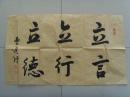 立言
立行
立德